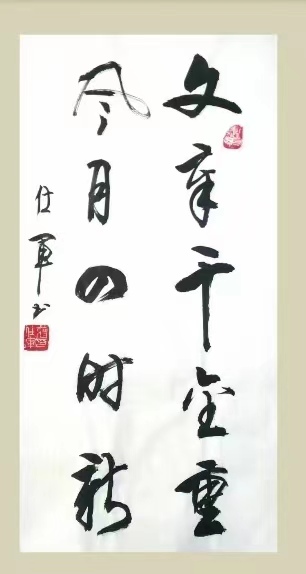 文章千金重
风月四时新
仕軍书